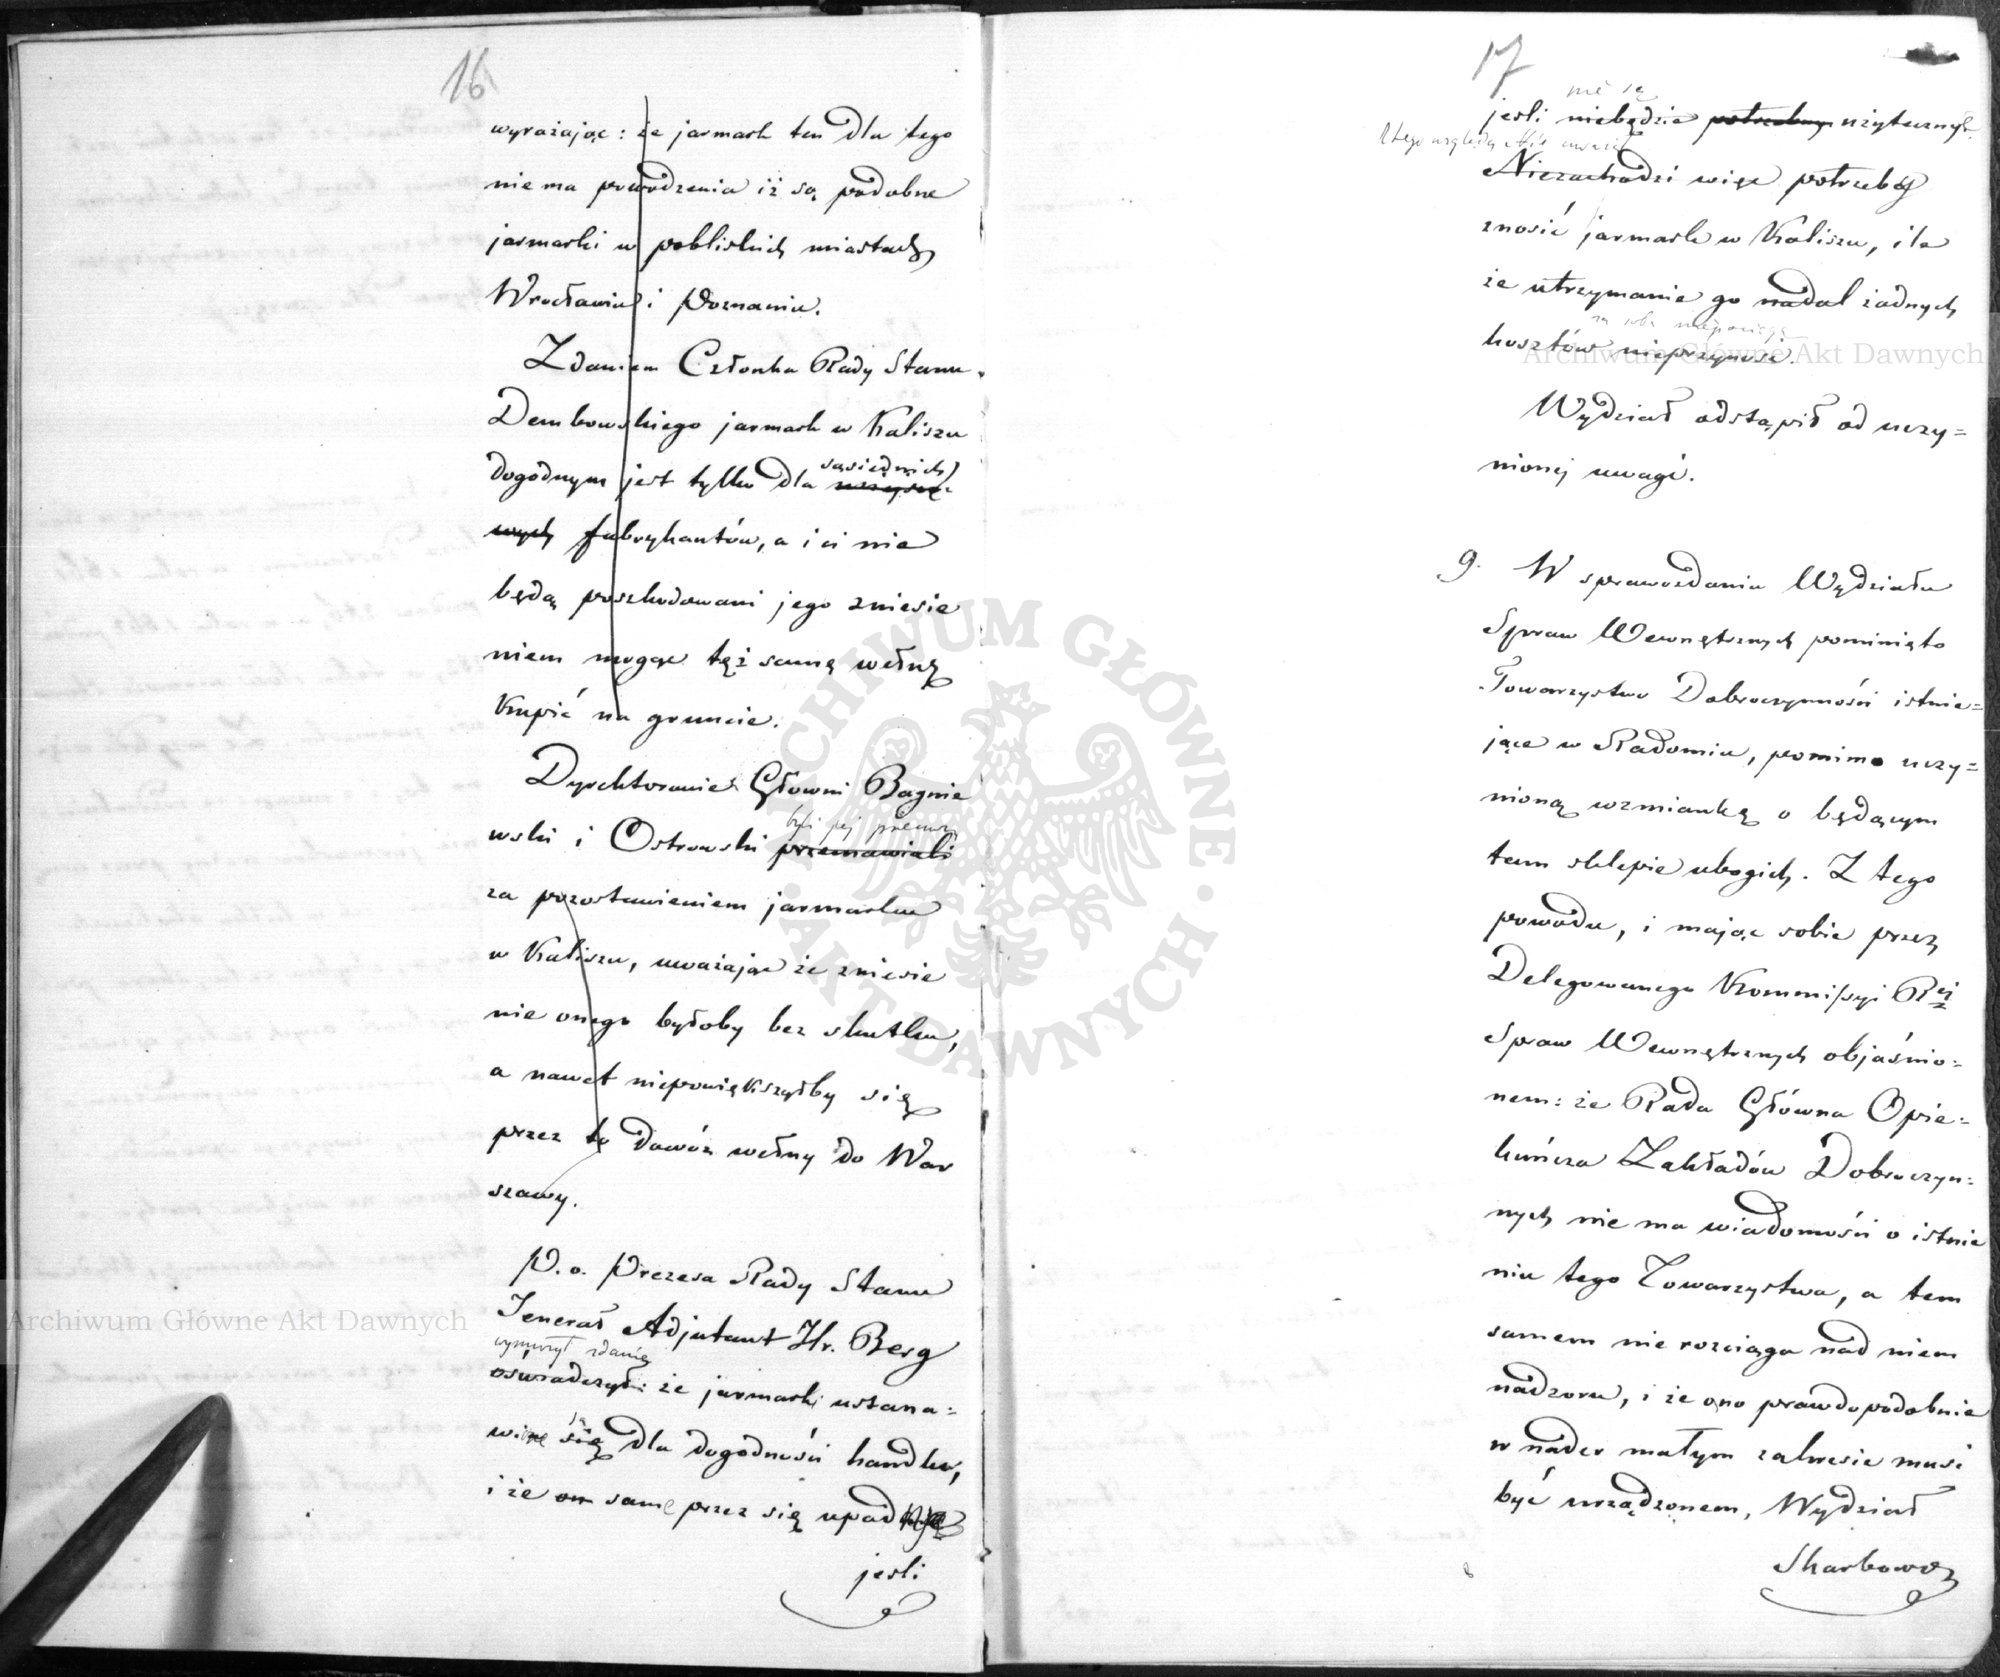 16
wyrażając: że jarmark ten dla tego
nie ma powodzenia iż są podobne
jarmarki w pobliskich miastach
Wrocławiu i Poznaniu.
Zdaniem Członka Rady Stanu
Dembowskiego jarmark w Kaliszu
sąsiednich
dogodnym jest tylko dla
fabrykantów, a i ci nie
będą poszkodowani jego zniesie
niem mogąc tęż samę wełnę
Kupić na gruncie.
Dyrektorowie Główni Bagnie
byli jej przeciwni
wski i Ostrowski przemawiali
za pozostawieniem jarmarku
w Kaliszu, uważając że zniesie
nie onego byłoby bez skutku,
a nawet niepowiększyłby się
przez to dowóz wełny do War
szawy.
P. o. Prezesa Rady Stanu
Jenerał Adjutant Hr. Berg
wynurzył zdanie
oświadczył: że jarmarki ustana=
wiane są się dla dogodności handlu,
i że same przez się upad
jeśli
17
nie są
jeśli niebędzie potrzebny użyteczny
Z tego względu nie uważał
Niezachodzi więc potrzeby
znosić jarmark w Kaliszu, ile
że utrzymanie go nadal żadnych
za sobą niepociąga
kosztów nieprzynosi.
Wydział odstąpił od uczy=
nionej uwagi.
9. W sprawozdaniu Wydziału
Spraw Wewnętrznych pominięto
Towarzystwo Dobroczynności istnie=
jące w Radomiu, pomimo uczy=
nioną wzmiankę o będącym
tam sklepie ubogich. Z tego
powodu, i mając sobie przez
Delegowanego Kommissyi Rej
Spraw Wewnętrznych objaśnio=
nem: że Rada Główna Opie=
kuńcza Zakładów Dobroczyn=
nych nie ma wiadomości o istnie
niu tego Towarzystwa, a tem
samem nie rozciąga nad niem
nadzoru, i że ono prawdopodobnie
w nader małym zakresie musi
być urządzonem, Wydział
Skarbowy
ARCHIWUM GŁÓWNE AKT DAWNYCH
Archiwum Główne Akt Dawnych
Archiwum Główne Akt Dawnych